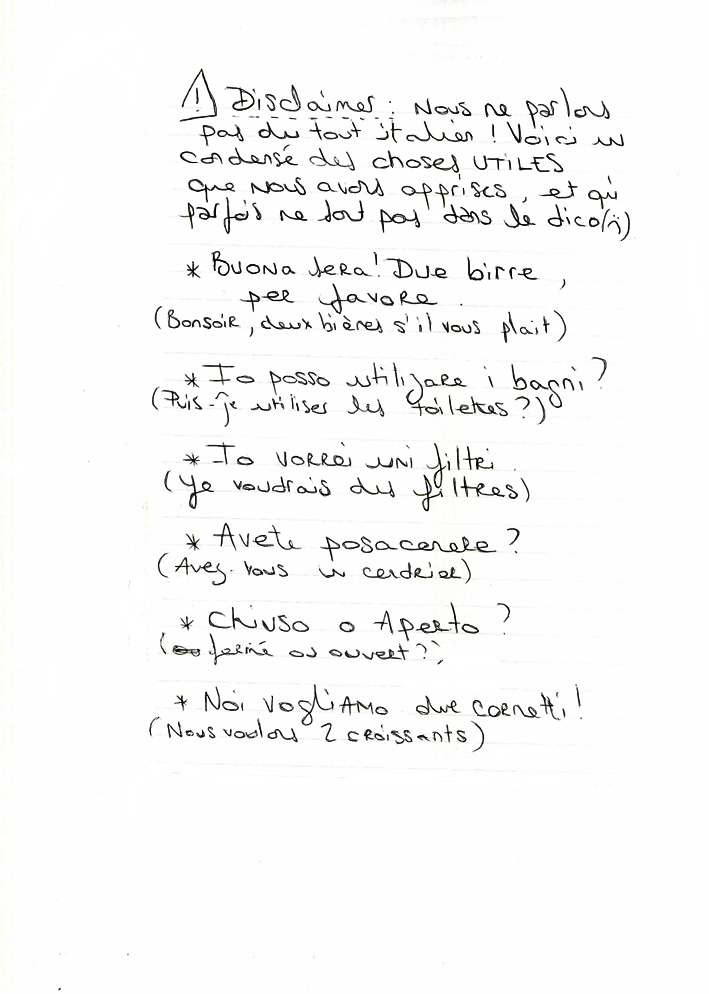 ⚠ Disclaimer : Nous ne parlons
pas du tout italien ! Voici un
condensé des choses UTILES
que nous avons apprises, et qui
parfois ne sont pas dans le dico (¨)
* Buona sera! Due birre,
per favore.
(Bonsoir, deux bières s'il vous plait)
* Io posso utilizare i bagni ?
(Puis-je utiliser les toilettes ?)
* Io vorrei uni filtri.
(Je voudrais des filtres)
* Avete posacenere ?
(Avez-vous un cendrier)
* Chiuso o Aperto ?
(fermé ou ouvert ?),
* Noi vogliamo due cornetti !
(Nous voulons 2 croissants)